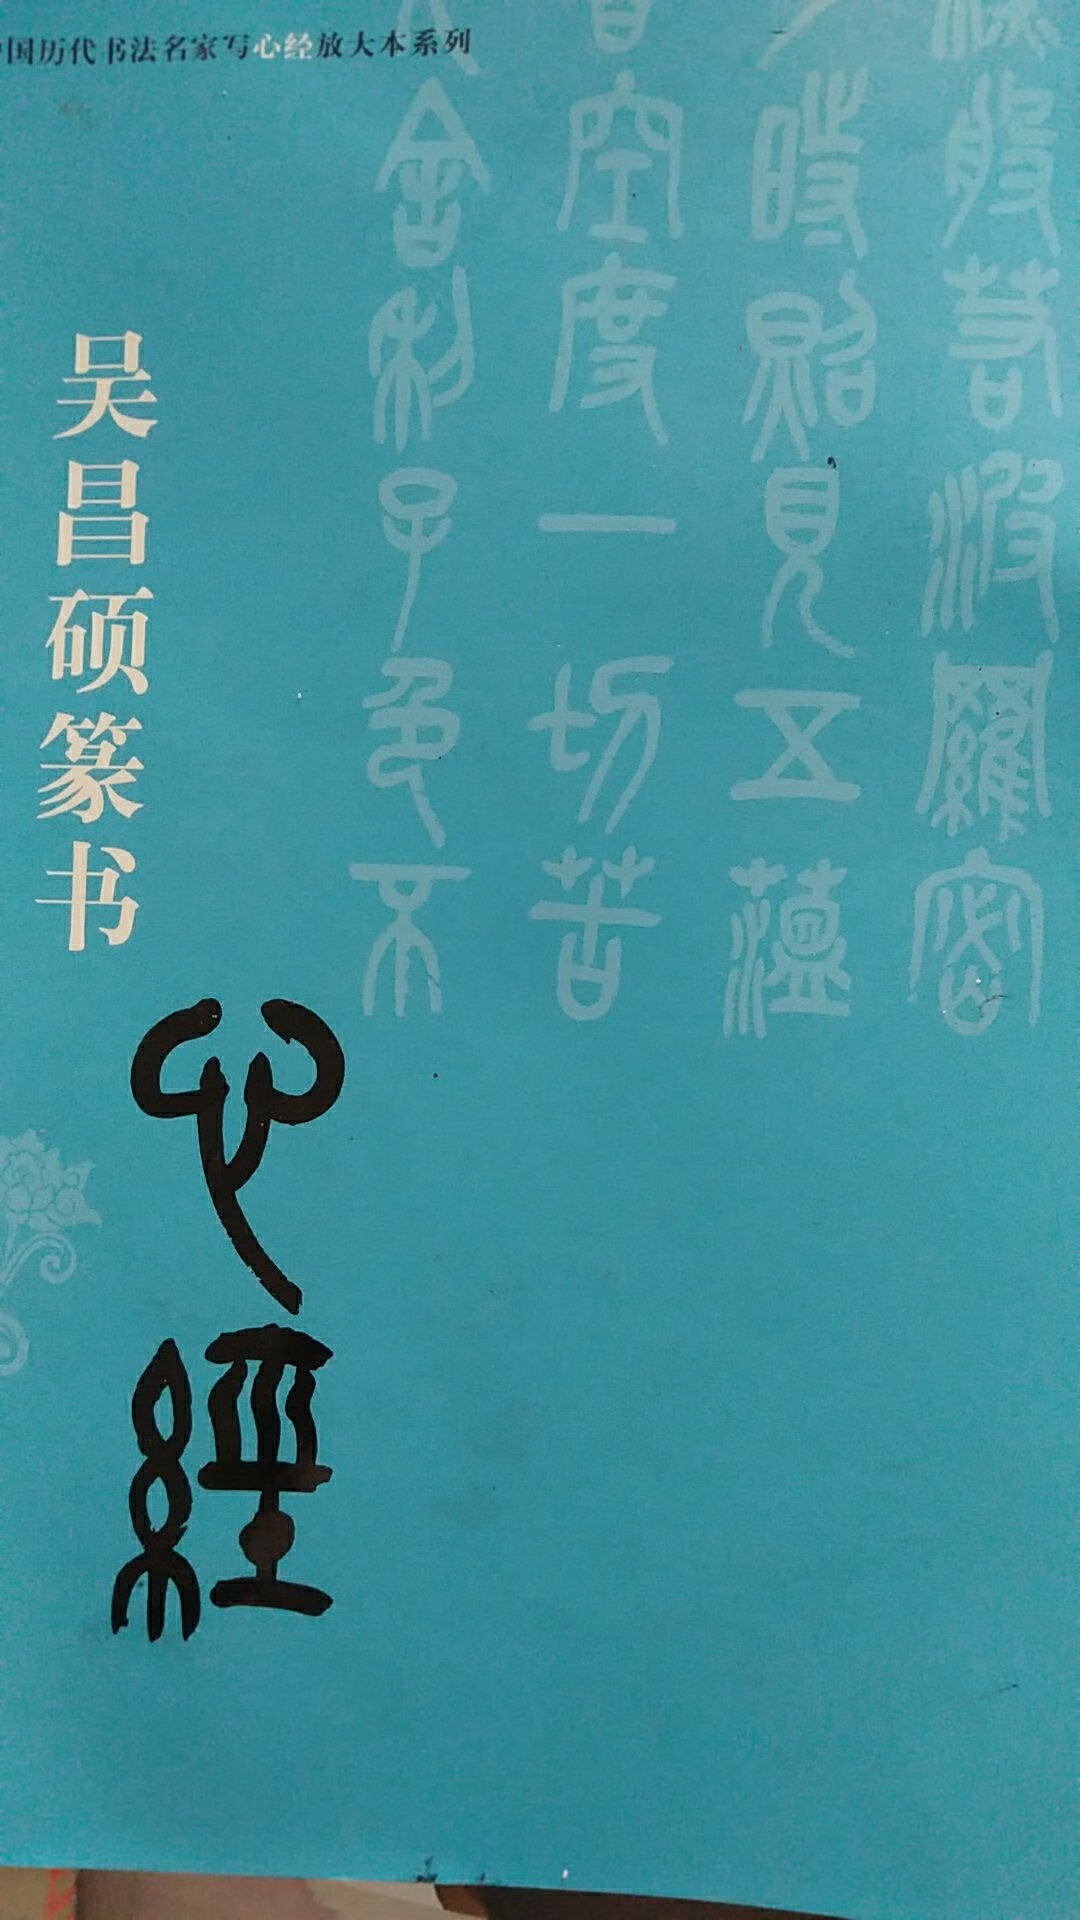 国历代书法名家写心经放大本系列
深般若波羅密
時照見五蘊
皆空度一切苦
舍利子色不
吴昌硕篆书
心經